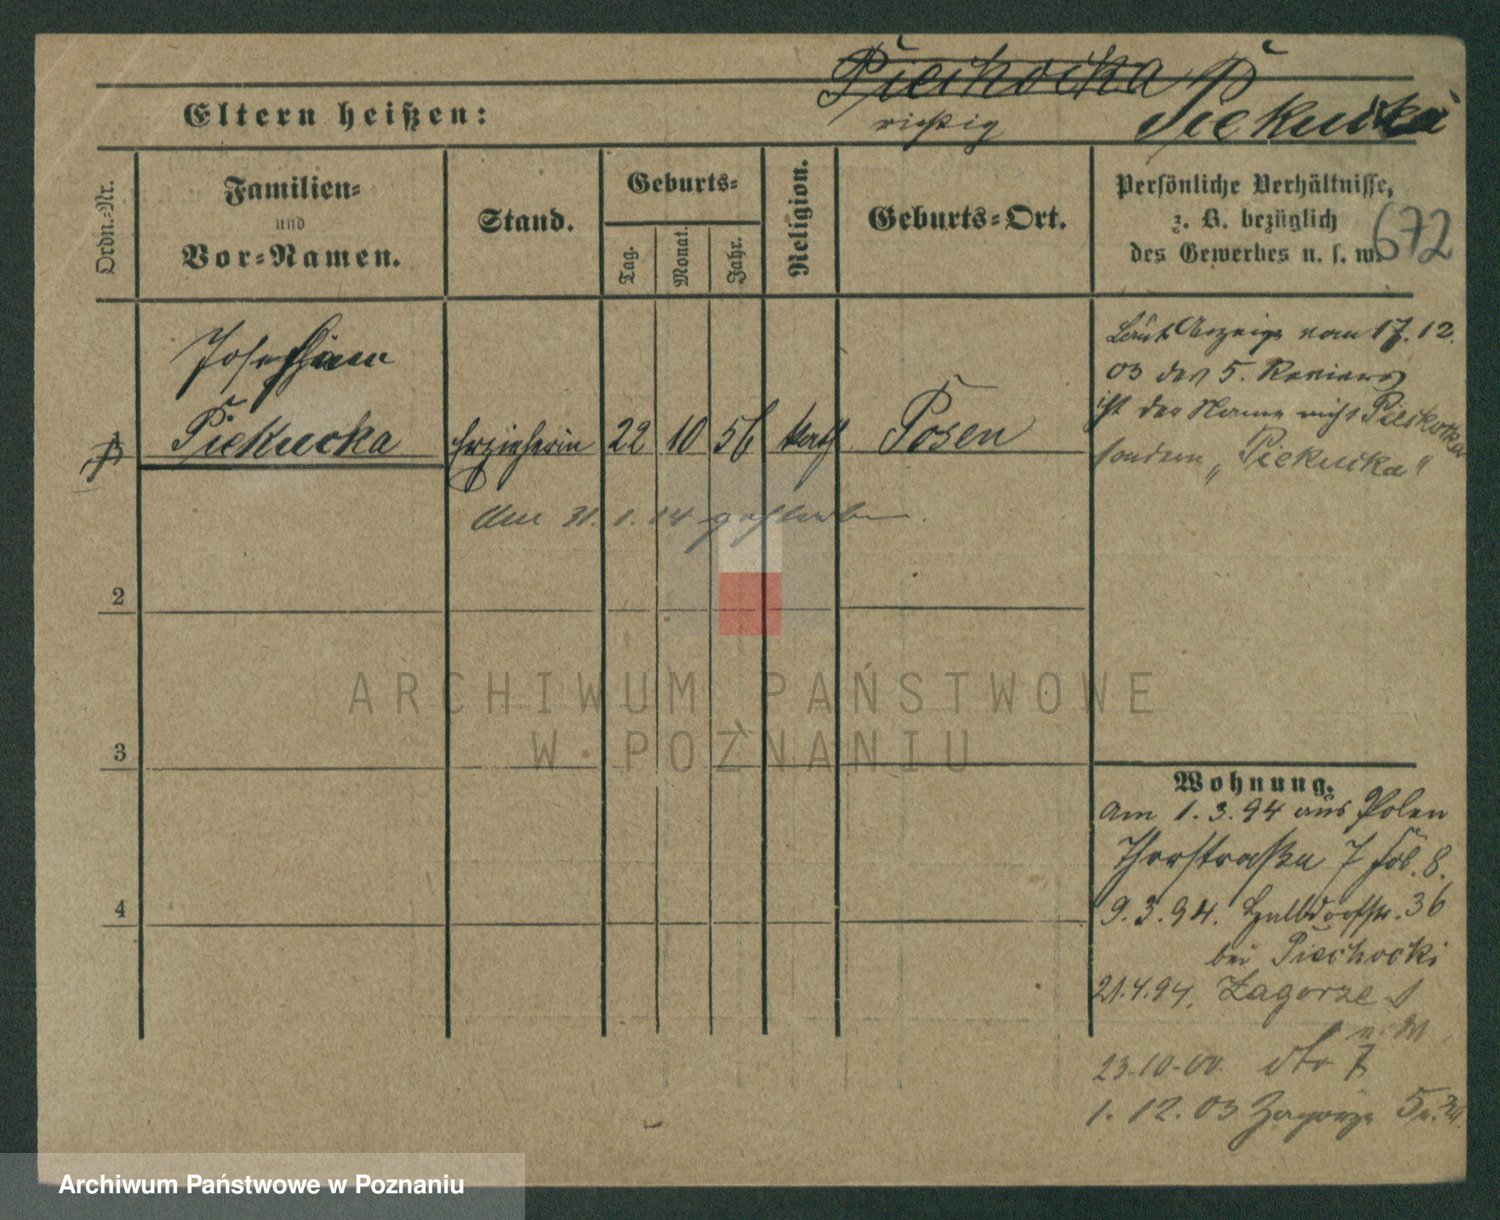 Piechocka
richtig Piekucka
Eltern heißen:
Ordn.=Nr.
Familien=
und
Vor=Namen.
Stand.
Geburts=
Tag.
Monat.
Jahr.
Religion.
Geburts=Ort.
Persönliche Verhältnisse,
z. B. bezüglich
des Gewerbes u. s. w.
672
Josephine
1 Piekucka Erzieherin 22 10 56 kath Posen
am 31. 1. 14 gestorben.
Laut Anzeige vom 17. 12.
03 des 5. Reviers
ist der Name nicht Piechocka
sondern „Piekucka"
2
3
4
Wohnung.
Am 1. 3. 94 aus Polen
Thorstraße 7
9. 3. 94. Halbdorfstr. 36
bei Piechocki
21. 4. 94. Zagorze
23-10-00 dto 7
1. 12. 03 Zagorze 5
ARCHIWUM PAŃSTWOWE
W POZNANIU
Archiwum Państwowe w Poznaniu